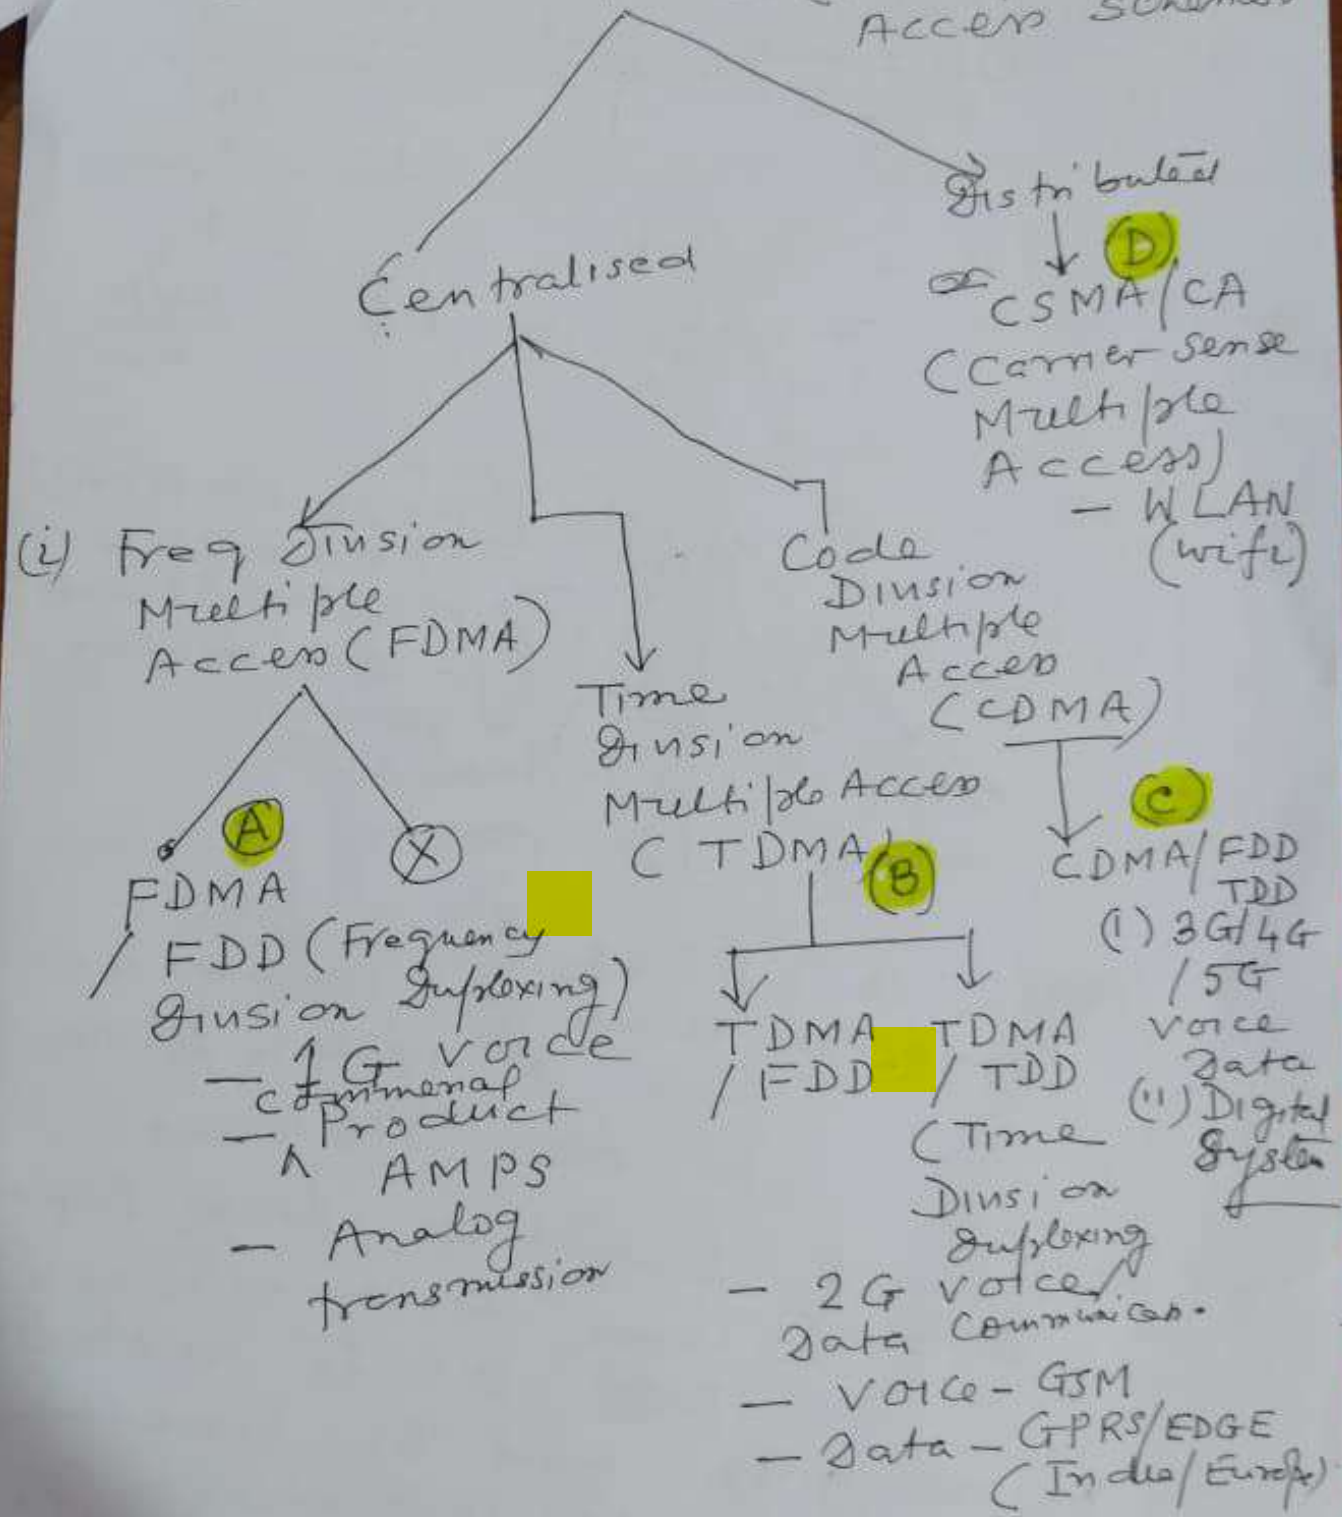 Access Schemes
Distributed
(D)
CSMA/CA
(Carrier Sense
Multiple
Access)
- WLAN
(wifi)
Centralised
(i) Freq Division
Multiple
Access (FDMA)
Time
Division
Multiple Access
(TDMA)
Code
Division
Multiple
Access
(CDMA)
(A)
(X)
FDMA
/ FDD (Frequency
Division Duplexing)
- 1G Voice
- Commercial
Product
AMPS
- Analog
transmission
(B)
TDMA
/ FDD
TDMA
/ TDD
(Time
Division
Duplexing
- 2G Voice/
Data Communican.
- Voice - GSM
- Data - GPRS/EDGE
(India/Europe)
(C)
CDMA/FDD
TDD
(i) 3G/4G
/5G
Voice
Data
(ii) Digital
System